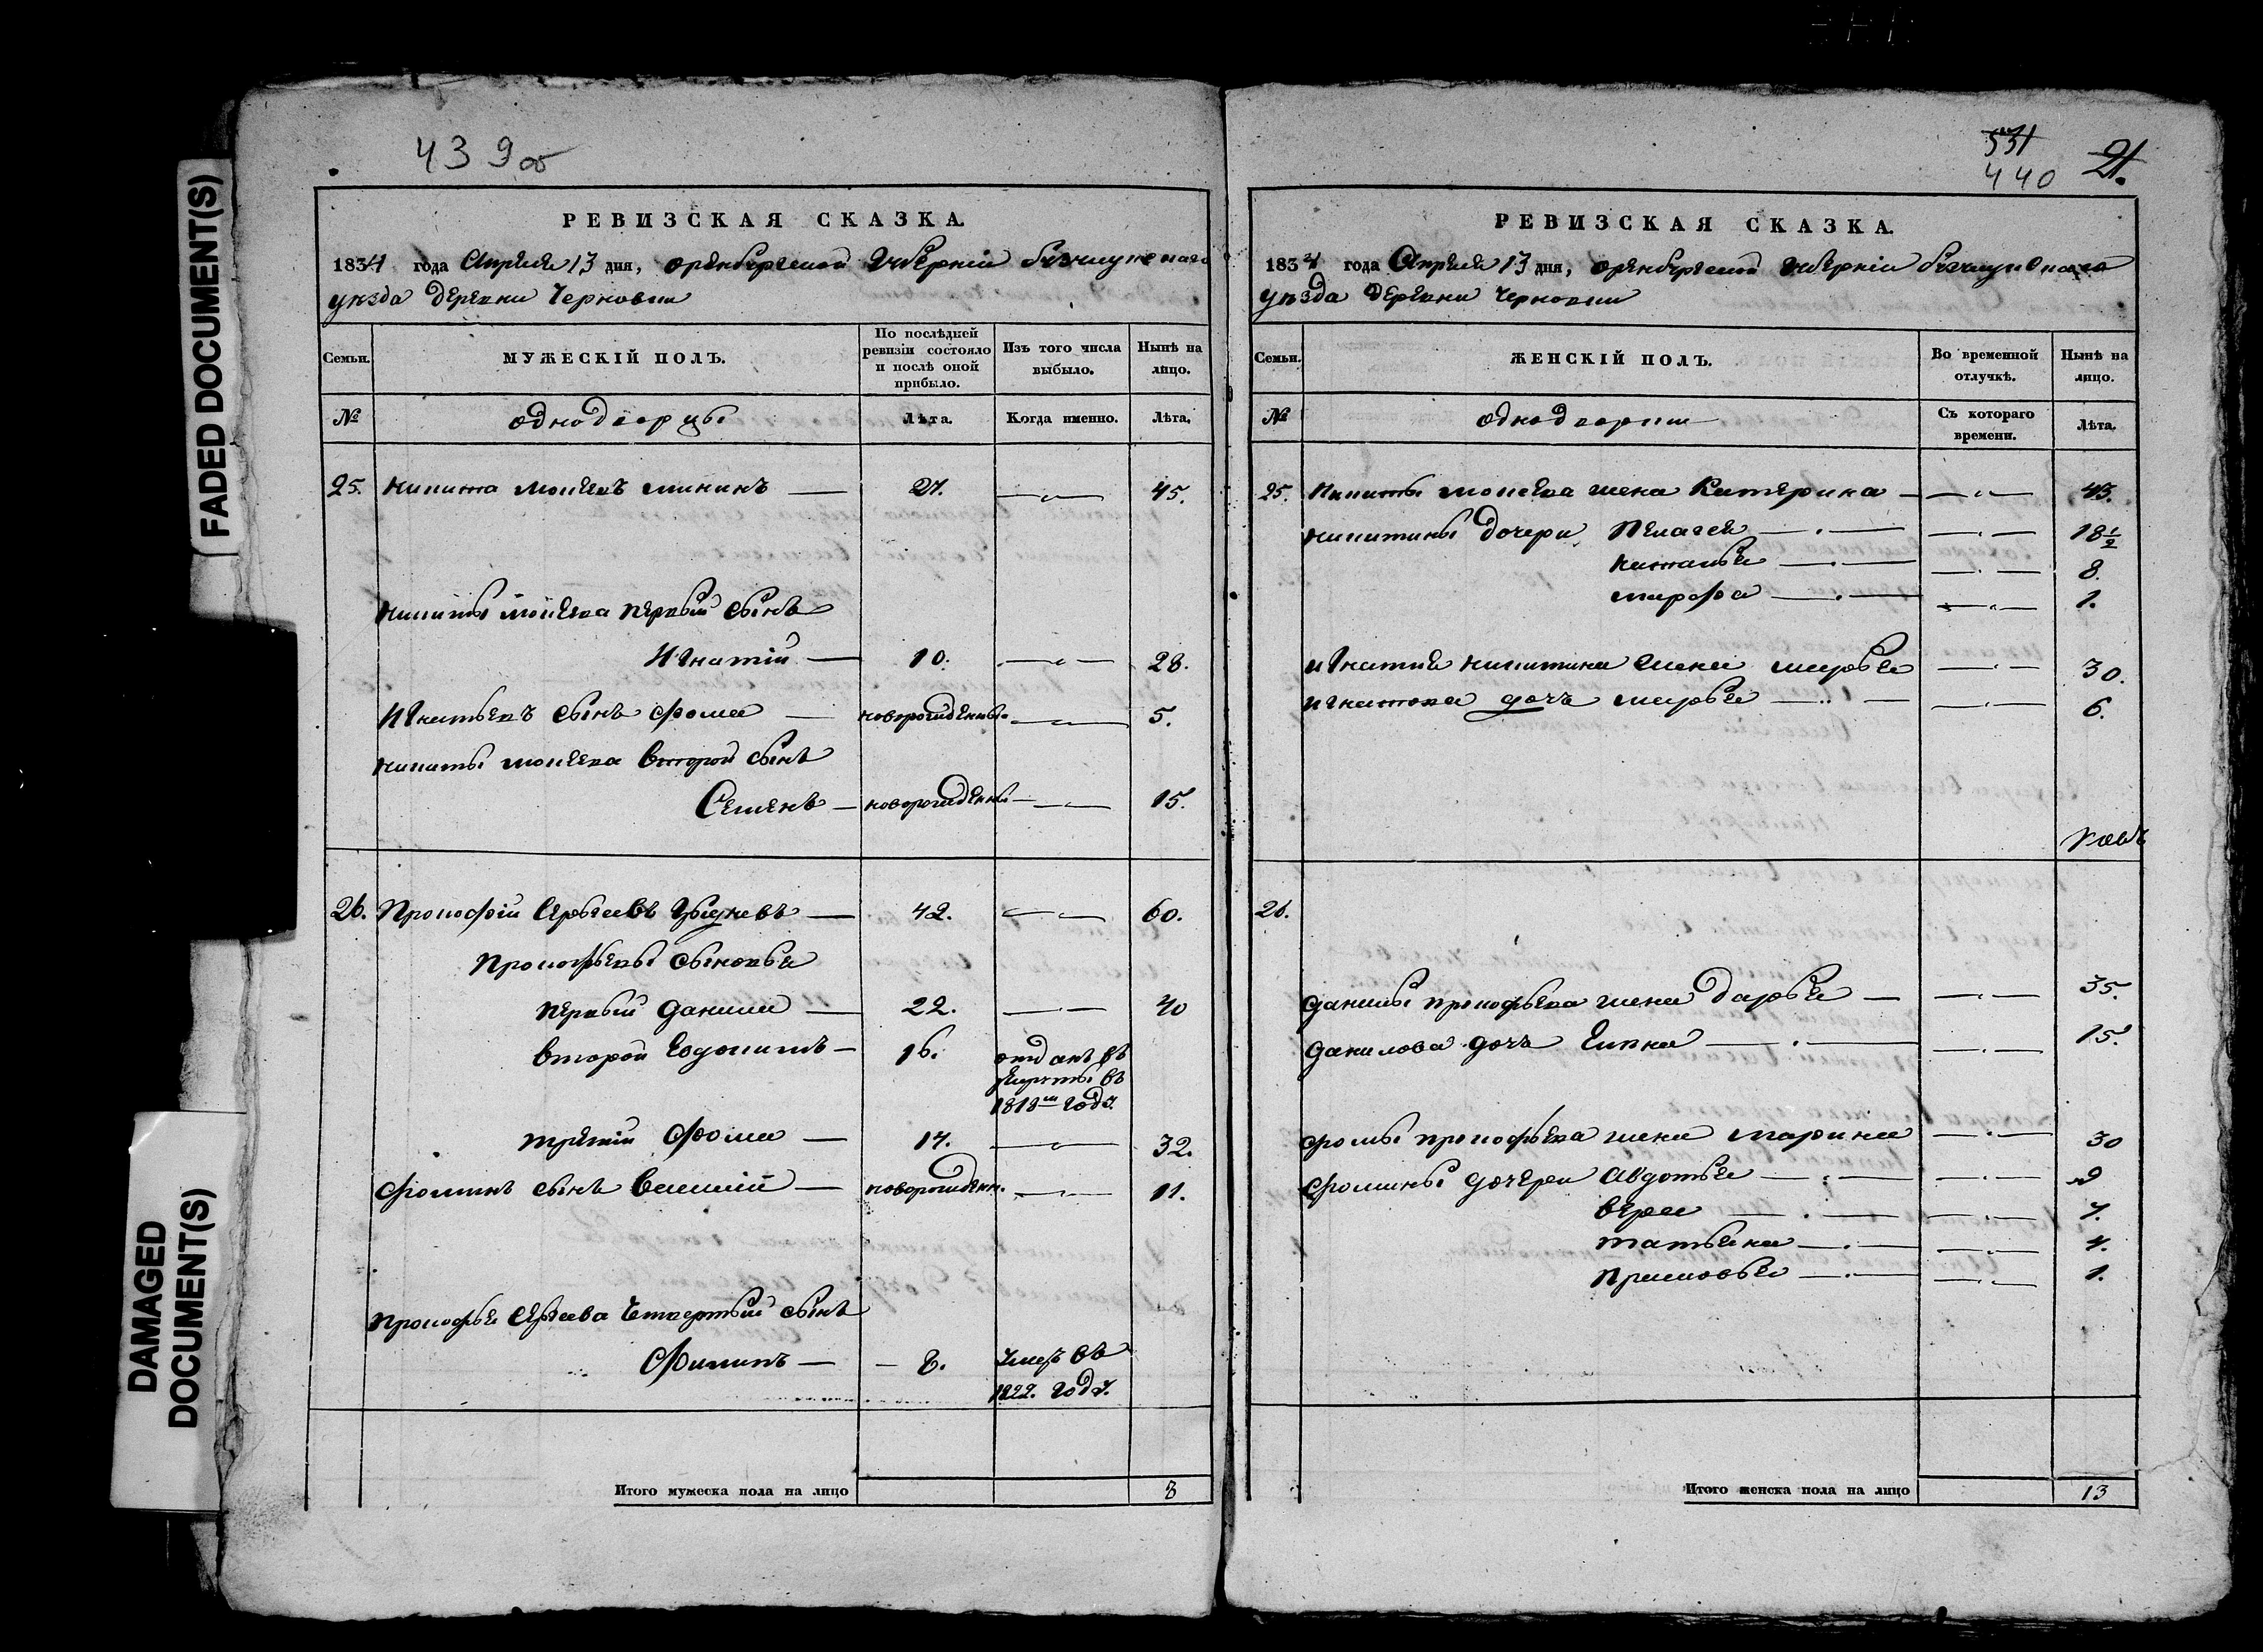 FADED DOCUMENT(S)
DAMAGED
DOCUMENT(S)
439об
РЕВИЗСКАЯ СКАЗКА.
1834 года Апреля 13 дня, оренбургской губернiи бузулукскаго
уезда деревни Черновки
Семьи.
МУЖЕСКIЙ ПОЛЪ.
По послѣдней ревизiи состояло и послѣ оной прибыло.
Изъ того числа выбыло.
Нынѣ на лицо.
№
однодворцы
Лѣта.
Когда именно.
Лѣта.
25. никита моисеевъ мининъ — 27. 45.
никиты моисеева первый сынъ
Игнатiй — 10. 28.
Игнатьевъ сынъ фома — новорожденны. 5.
никиты моисеева второй сынъ
Семенъ — новорожденны. 15.
26. Прокофiй Сергеевъ — 42. 60.
Прокофьевы сыновья
первый данила — 22. 40
второй — 16. отданъ въ
рекруты въ
1818м году.
третiй Фома — 14. 32.
Фоминъ сынъ Василiй — новорожденн. 11.
Прокофья Сергеева Четвертый сынъ
Филипъ — 8. умеръ въ
1822. году.
Итого мужеска пола на лицо 8
531
440
21.
РЕВИЗСКАЯ СКАЗКА.
1834 года Апреля 13 дня, оренбургской губернiи бузулукскаго
уезда деревни Черновки
Семьи.
ЖЕНСКIЙ ПОЛЪ.
Во временной отлучкѣ.
Нынѣ на лицо.
№
однодворки
Съ котораго времени.
Лѣта.
25. Никиты моисеева жена Катерина — 43.
никитины дочери Пелагея — 18½
наталья — 8.
марфа — 1.
игнатия никитина жена марья — 30.
игнатова дочь марья — 6.
26.
данилы прокофьева жена дарья — 35.
данилова дочь — 15.
фомы прокофьева жена марина — 30
фомины дочери Авдотья — 9
вера — 7.
татьяна — 4.
Прасковья — 1.
Итого женска пола на лицо 13